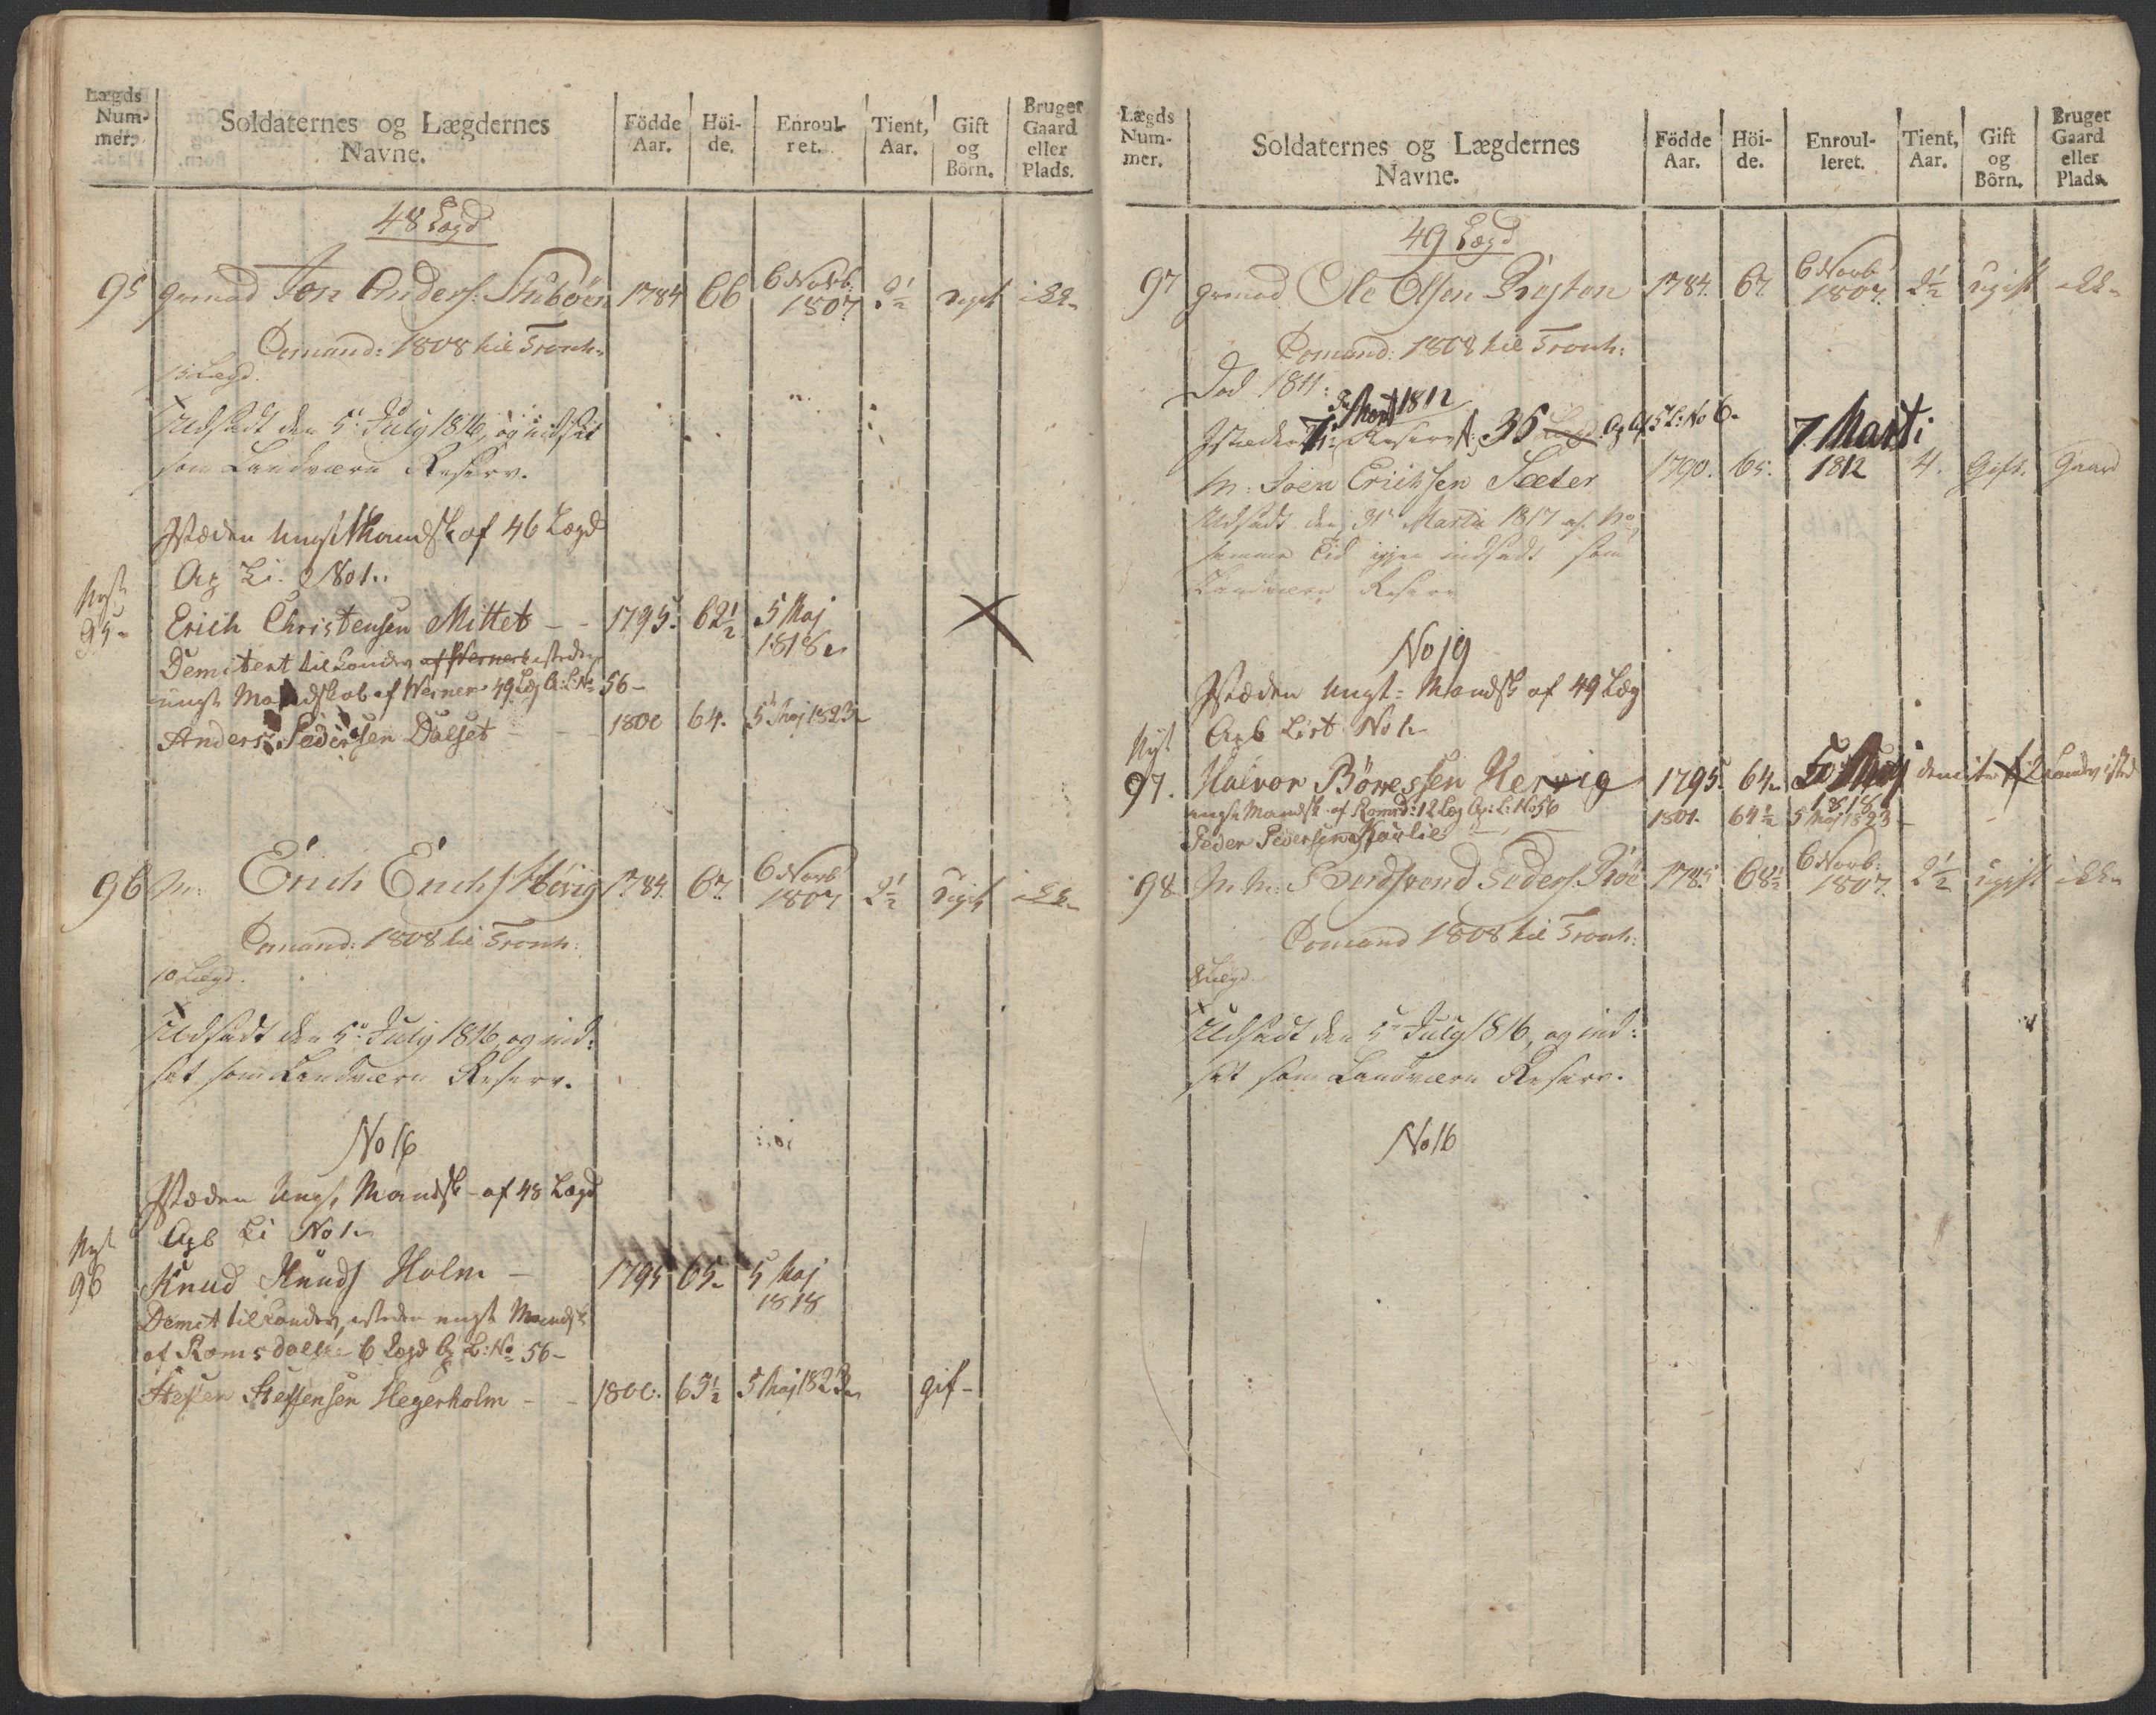 Lægds Num- mer.
Soldaternes og Lægdernes Navne.
Födde Aar.
Höi- de.
Enroul- ret.
Tient, Aar.
Gift og Börn.
Bruger Gaard eller Plads.
48 Lægd
95 Jon Anders. 1784 66 6 Novb. 1807 2½ ugift
Comand: 1808 til Tronh:
15 Lægd.
Udsadt den 5te July 1816, og indsat
som Landværn Reserv.
Isteden Ungt Mandsk af 46 Lægd
Li. No 1.
Nyt 95 Erich Christensen Mittet - - 1795. 62½ 5 Maj 1818
Demitert til Landev isteden
ungt Mandskab af 49 Læg L: No 56 -
Anders Pedersen Dalset - - 1800 64. 5 Maj 1823
96 Erich Erichs Høvig 1784. 67. 6 Novb 1807 2½ ugift
Comand: 1808 til Tronh:
10 Lægd.
Udsadt den 5te July 1816 og ind:
sat som Landværn Reserv.
No 16
Isteden Ungt Mandsk - af 48 Lægd
Li No 1
Nyt 96 Knud Knuds Holm - 1795 65 5 Maj 1818
Demit til Landev, isteden ungt Mandsk
af Romsdalske 6 Lægd L: No 56 -
Steffen Steffensen Hegerholm - - 1800. 63½ 5 Maj 1823 gif -
Lægds Num- mer.
Soldaternes og Lægdernes Navne.
Födde Aar.
Höi- de.
Enroul- leret.
Tient, Aar.
Gift og Börn.
Bruger Gaard eller Plads.
49 Lægd
97 Ole Olsen 1784. 67. 6 Novb 1807. 2½ ugift
Comand: 1808 til Tronh:
Død 1811:
Mart 1812
Isteden Reserv 36 L: No 6
Joen Erichsen Sæter 1790. 65. 7 Marti 1812 4. Gift. Gaard
Udsadt den 31te Martii 1817
samme Tid igjen indsadt som
Landværn Reserv
No 19
Isteden Ungt: Mandsk af 49 Læg
List No 1
Nyt 97. Halvor Børressen Hervig 1795. 64 5 Maj 1818
ungt Mandsk af Romsd: 12 Læg L: No 56
Peder Pedersen 1801. 64½ 5 Maj 1823 -
98 Peders. 1785 68½ 6 Novb. 1807. 2½ ugift
Comand 1808 til Tronh:
Lægd.
Udsadt den 5te July 1816, og ind:
sat som Landværn Reserv.
No 16